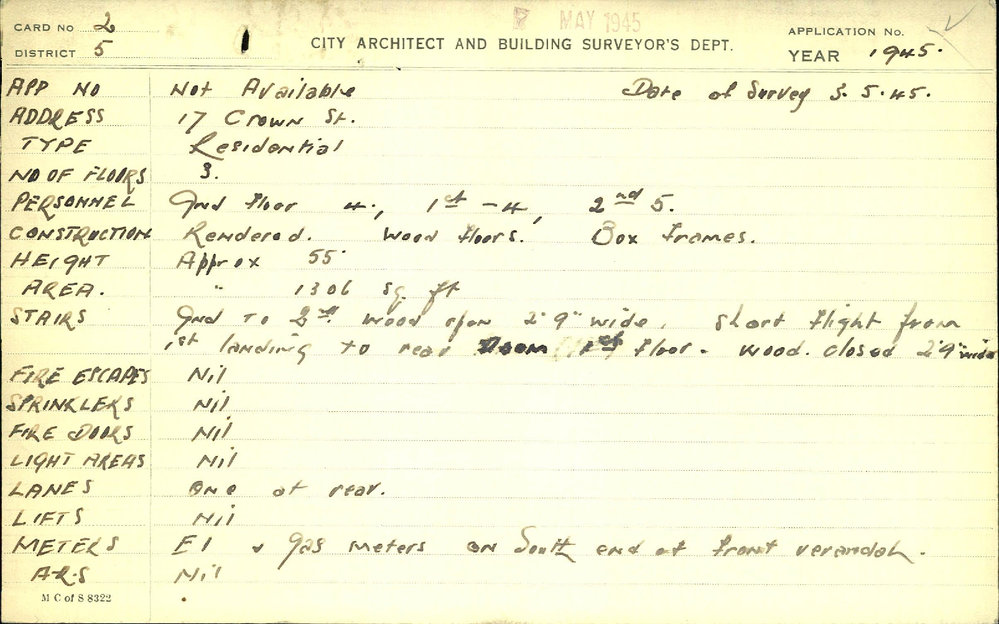 CARD No 2
DISTRICT 5
MAY 1945
CITY ARCHITECT AND BUILDING SURVEYOR'S DEPT.
APPLICATION No.
YEAR 1945.
APP NO Not Available Date of Survey 3.5.45.
ADDRESS 17 Crown St.
TYPE Residential
NO OF FLOORS 3.
PERSONNEL Gnd floor 4., 1st - 4, 2nd 5.
CONSTRUCTION Rendered. Wood floors. Box frames.
HEIGHT Approx 55'
AREA. " 1306 sq. ft
STAIRS Gnd to 2nd. wood open 2'9" wide. Short flight from
1st landing to rear Room (1st) floor. wood. closed 2'9" wide
FIRE ESCAPES Nil
SPRINKLERS Nil
FIRE DOORS Nil
LIGHT AREAS Nil
LANES One at rear.
LIFTS Nil
METERS El & Gas meters on South end of front verandah.
A.R.S Nil
M C of S 8322